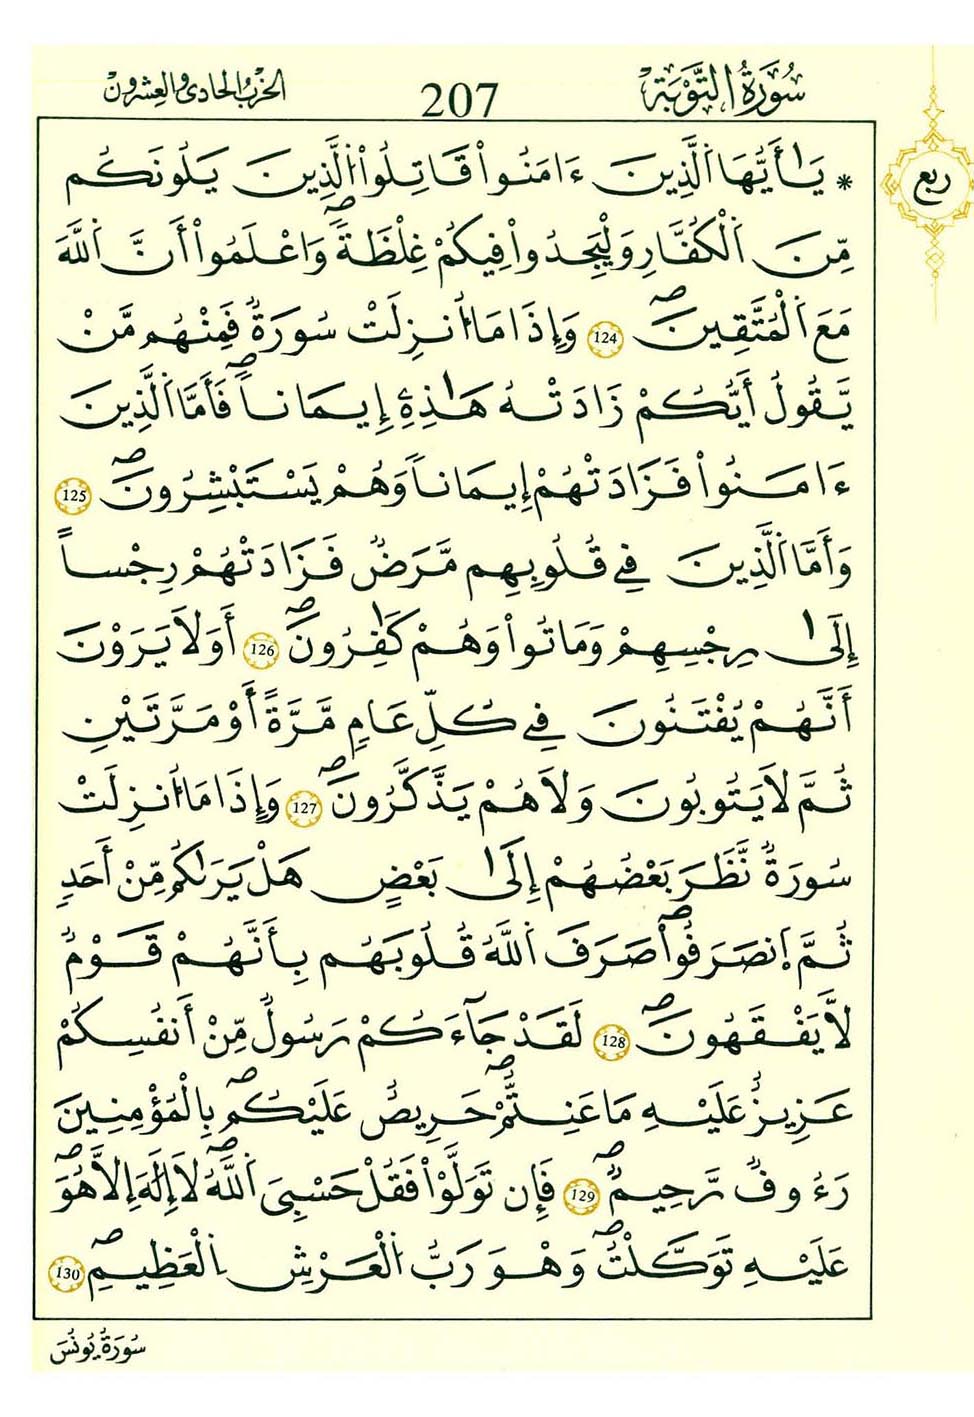 سُورَةُ التَّوْبَةِ 207 الحزب الحادي والعشرون
ربع
* يَٰأَيُّهَا اَ۬لذِينَ ءَامَنُواْ قَاتِلُواْ اُ۬لذِينَ يَلُونَكُم
مِّنَ اَ۬لْكُفَّارِ وَلْيَجِدُواْ فِيكُمْ غِلْظَةٗۖ وَاعْلَمُواْ أَنَّ اَ۬للَّهَ
مَعَ اَ۬لْمُتَّقِينَۖ 124 وَإِذَا مَا أُنزِلَتْ سُورَةٞ فَمِنْهُم مَّنْ
يَّقُولُ أَيُّكُمْ زَادَتْهُ هَٰذِهِۦ إِيمَاناٗۖ فَأَمَّا اَ۬لذِينَ
ءَامَنُواْ فَزَادَتْهُمْ إِيمَاناٗ وَهُمْ يَسْتَبْشِرُونَۖ 125
وَأَمَّا اَ۬لذِينَ فِے قُلُوبِهِم مَّرَضٞ فَزَادَتْهُمْ رِجْساً
إِلَىٰ رِجْسِهِمْ وَمَاتُواْ وَهُمْ كَٰفِرُونَۖ 126 أَوَلَا يَرَوْنَ
أَنَّهُمْ يُفْتَنُونَ فِے كُلِّ عَامٖ مَّرَّةً أَوْ مَرَّتَيْنِ
ثُمَّ لَا يَتُوبُونَ وَلَا هُمْ يَذَّكَّرُونَۖ 127 وَإِذَا مَا أُنزِلَتْ
سُورَةٞ نَّظَرَ بَعْضُهُمْ إِلَىٰ بَعْضٍ هَلْ يَرَىٰكُم مِّنْ أَحَدٖ
ثُمَّ اَ۪نصَرَفُواْۖ صَرَفَ اَ۬للَّهُ قُلُوبَهُم بِأَنَّهُمْ قَوْمٞ
لَّا يَفْقَهُونَۖ 128 لَقَدْ جَآءَكُمْ رَسُولٞ مِّنْ أَنفُسِكُمْ
عَزِيزٌ عَلَيْهِ مَا عَنِتُّمْۖ حَرِيصٌ عَلَيْكُمۖ بِالْمُؤْمِنِينَ
رَءُوفٞ رَّحِيمٞۖ 129 فَإِن تَوَلَّوْاْ فَقُلْ حَسْبِيَ اَ۬للَّهُۖ لَا إِلَٰهَ إِلَّا هُوَۖ
عَلَيْهِ تَوَكَّلْتُۖ وَهْوَ رَبُّ اُ۬لْعَرْشِ اِ۬لْعَظِيمِۖ 130
سُورَةُ يُونُسَ